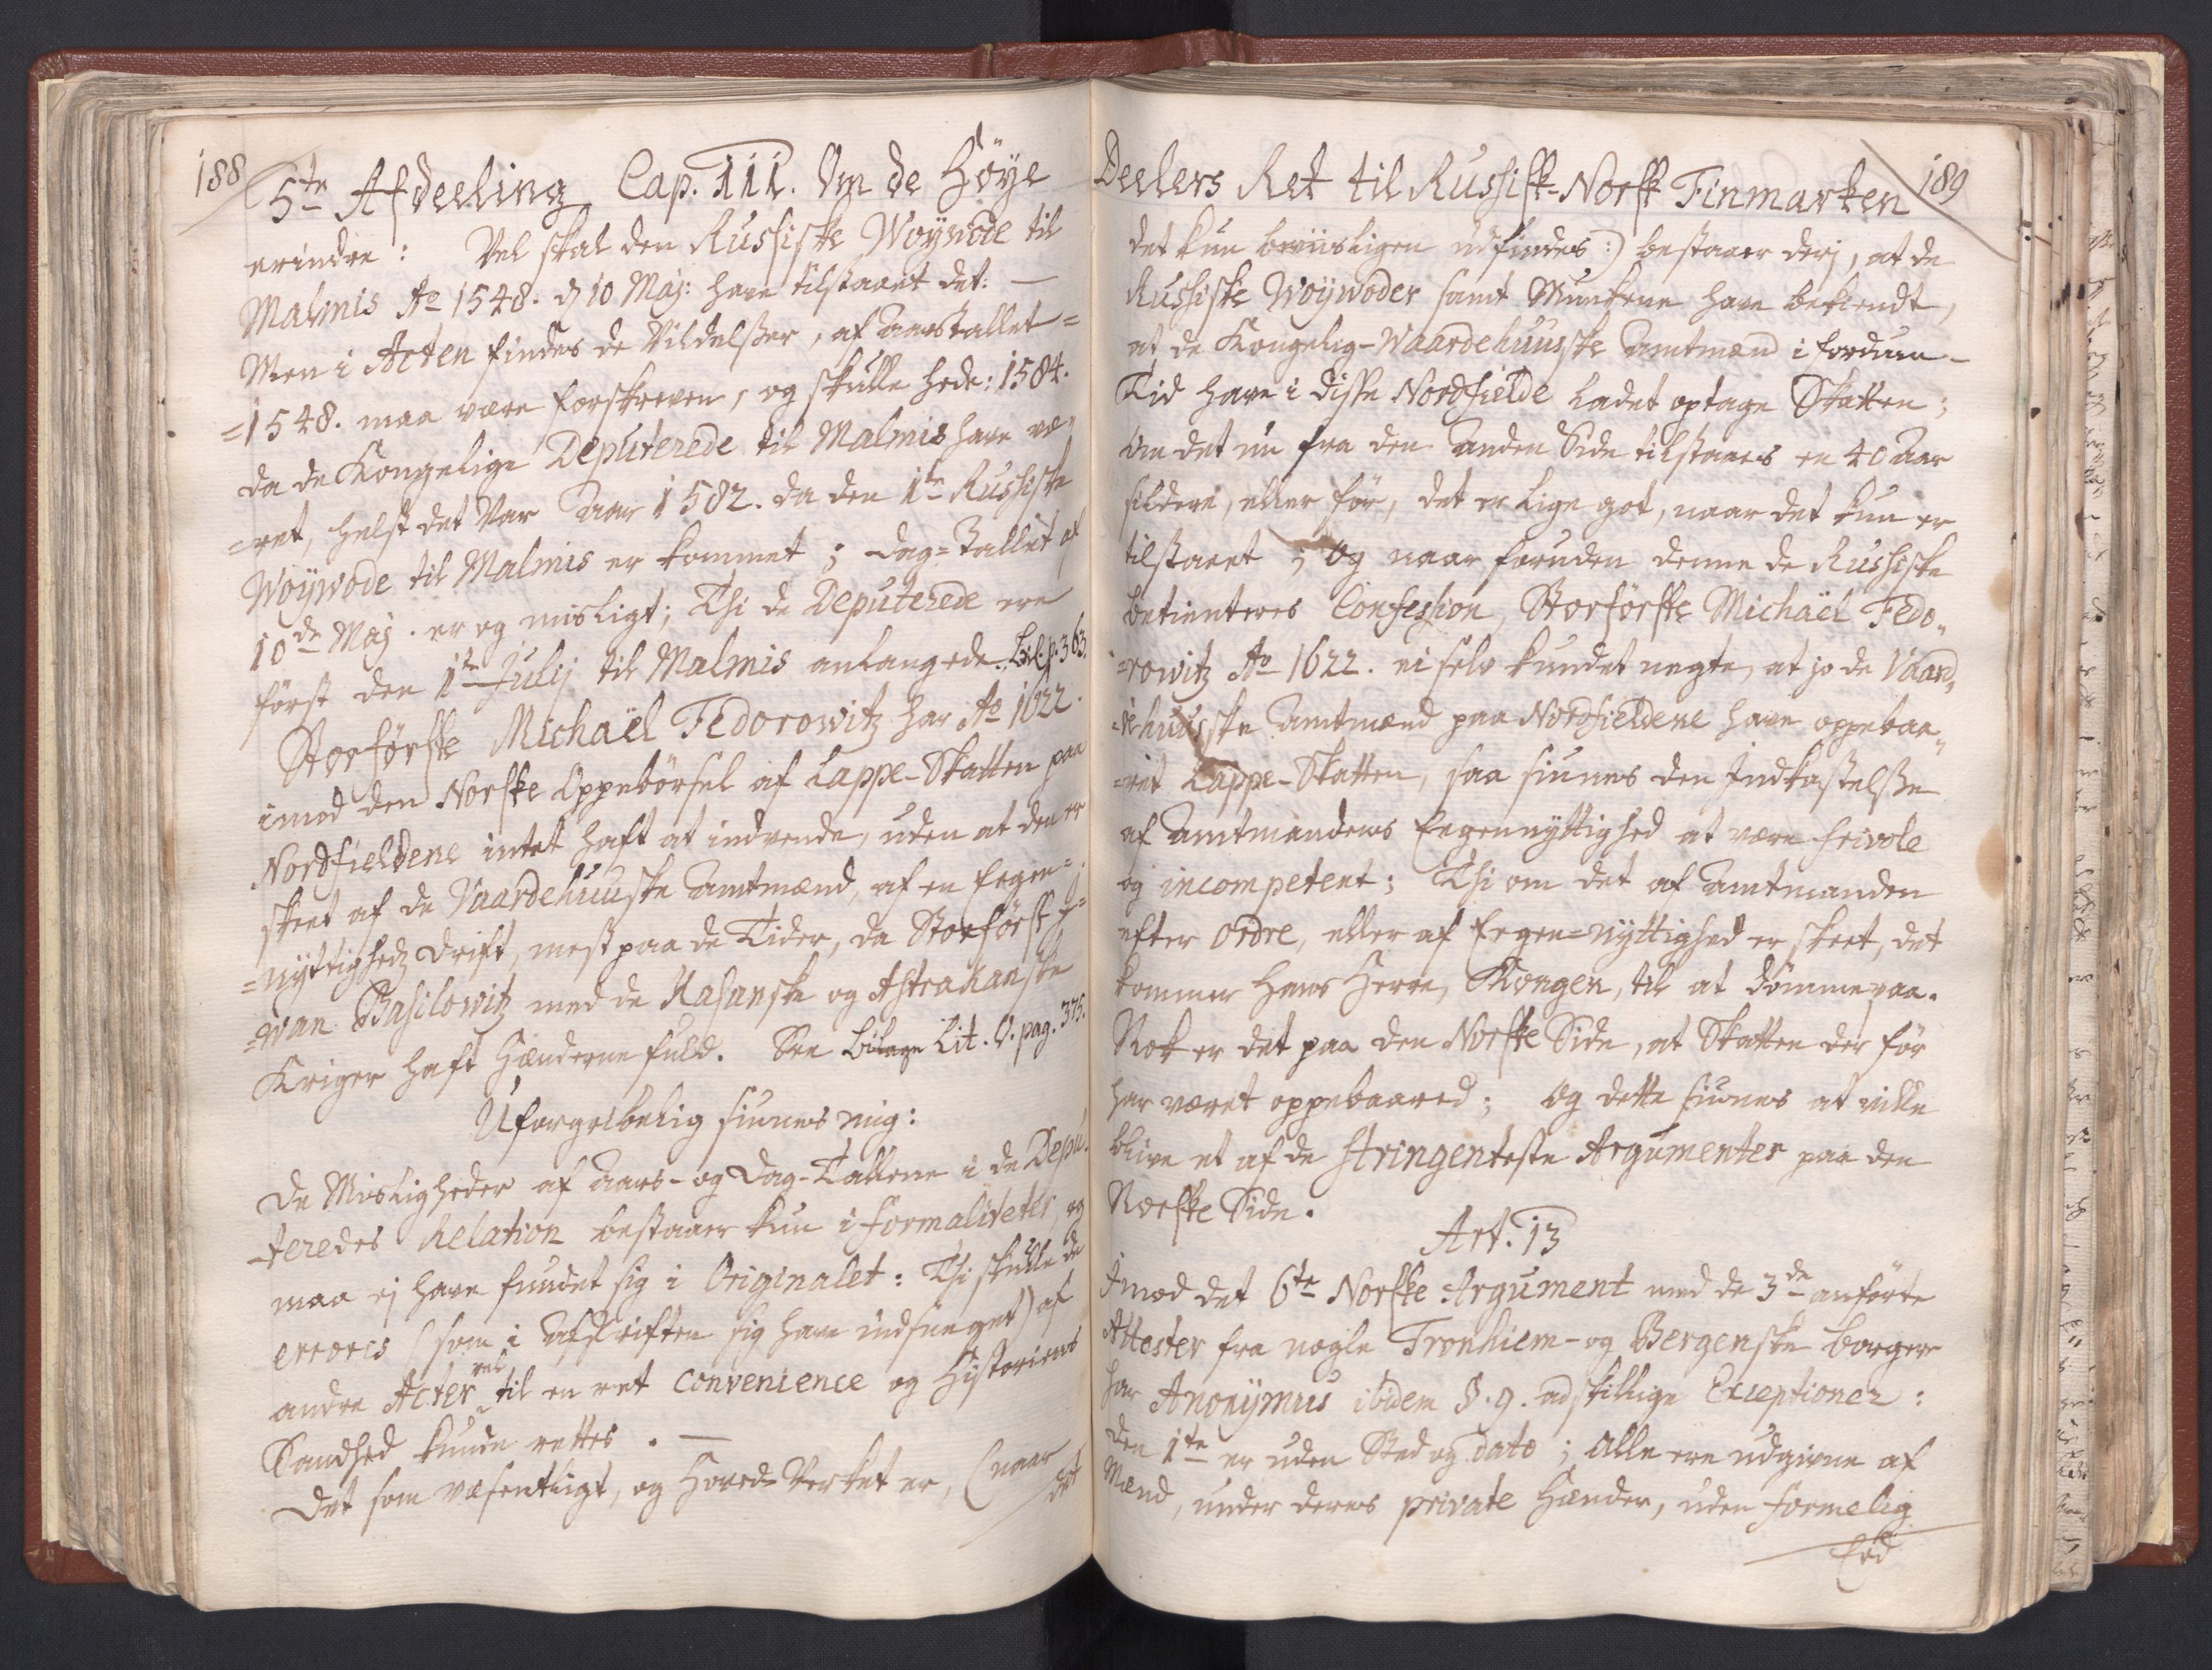 188
5te Afdeeling Cap. III. Om de Höye
erindre: Vel skal den Russiske Woywode til
Malmis Ao 1548. d 10 Maj: have tilstaaet det: —
Men i Acten findes de Vildelsser, af Aarstallet=
=1548. maa være forskreven, og skulle hede: 1584.
da de Kongelige Deputerede til Malmis have væ„
=ret, helst det var Aar 1582. da den 1te Russiske
Woywode til Malmis er kommet; Dag=Tallet af
10de Maj. er og misligt; Thi de Deputerede ere
först den 1te Julij til Malmis anlangede. Bil. p. 363.
Storförste Michaël Fedorowitz har Ao 1622.
imod den Norske Oppebörsel af Lappe-Skatten paa
Nordfieldene intet haft at indvende, uden at den er
skeet af de Vaardehuuske Amtmænd, af en Eegen=
=nyttigheds drift, mest paa de Tider, da Storförst I=
=wan Basilowitz med de Kasanske og Astrakanske
Kriger haft Hænderne fuld. See Bilage Lit. O. pag. 375.
Uforgribelig siunes mig:
De Misligheder af Aars- og Dag-Tallene i de Depu„
teredes Relation bestaaer kun i formaliteter, og
maa ej have fundet sig i Originalet: Thi skulle de
errores (som i Afskriften sig have indsneget) af
andre Acter vel til en ret convenience og Historiens
Sandhed kunde rettes. —
Det som væsentligt, og Hoved-Verket er, (naar
det
Deelers Ret til Russisk-Norsk Finmarken
189
det kun beviisligen udfindes:) bestaaer derj, at de
Russiske Woywoder samt Munkene have bekiendt,
at de Kongelig-Waardehuusske Amtmænd i fordum-
Tid have i disse Nordfielde ladet optage Skatten;
Om det nu fra den anden Side tilstaaes en 40 Aar
sildere, eller för, det er lige got, naar det kun er
tilstaaet; Og naar foruden denne de Russiske
betienteres Confession, Storförste Michaël Fedo„
=rowitz Ao 1622. ei selv kundet negte, at jo de Vaard„
=ehuusske Amtmænd paa Nordfieldene have oppebaa„
=ret Lappe-Skatten, saa siunes den Indkastelsse
af Amtmændenes Eegennyttighed at være frivole
og incompetent: Thi om det af Amtmanden
efter Ordre, eller af Eegen=nyttighed er skeet, det
kommer hans Herre, Kongen, til at dömme paa.
Nok er det paa den Norske Side, at Skatten der för
har været oppebaared; Og dette siunes at ville
blive et af de stringenteste Argumenter paa den
Norske Side.
Art. 13
Imod det 6te Norske Argument med de 3de anförte
Attester fra nogle Tronhiem- og Bergenske borger
har Anonymus ibidem §. 9. adskillige Exceptioner:
Den 1te er uden Sted og dato; Alle ere udgivne af
Mænd, under deres private Hænder, uden formelig
Eed